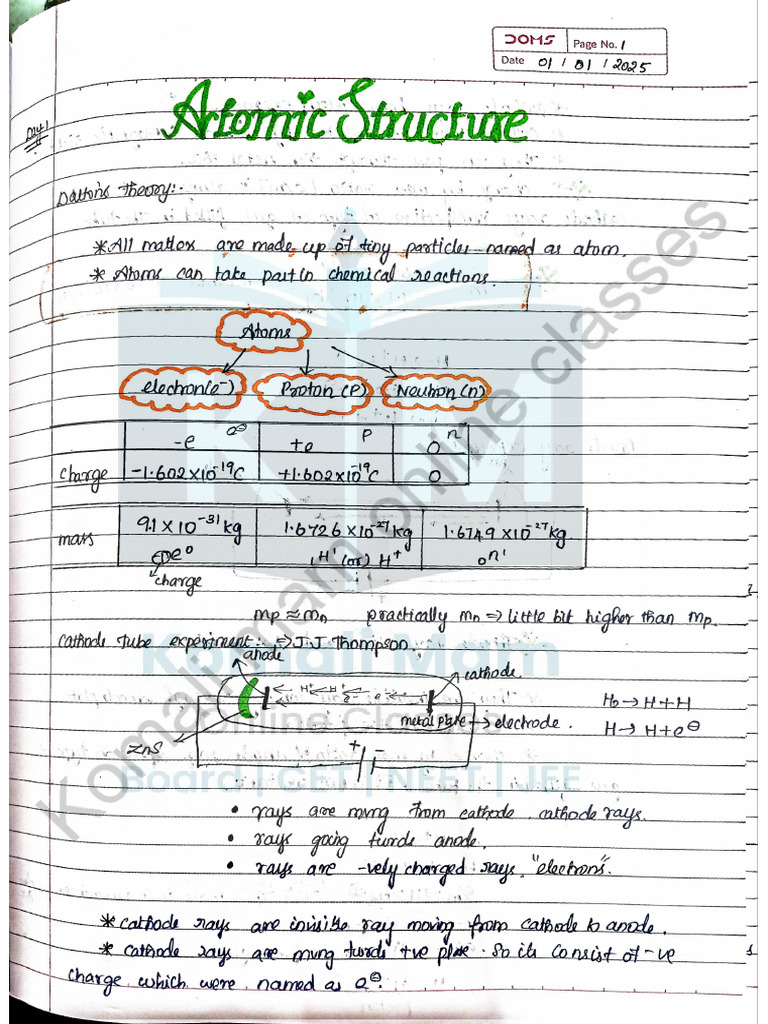 DOMS Page No. 1
Date 01 / 01 / 2025
Day 1
Atomic Structure
Dalton's Theory:-
* All matters are made up of tiny particles named as atom.
* Atoms can take part in chemical reactions.
Atoms
electron(e⁻) Proton (P) Neutron (n)
-e e⊖ +e P 0 n
charge -1.602×10⁻¹⁹C +1.602×10⁻¹⁹C 0
mass 9.1×10⁻³¹kg 1.6726×10⁻²⁷kg 1.6749×10⁻²⁷kg
e⁰ ₁H¹ (or) H⁺ ₀n¹
charge
mp ≈ mn practically mn ⇒ little bit higher than mp.
Cathode Tube experiment:- ⇒ J.J Thompson.
anode
cathode
H⁺ H⁺
e⁻ e⁻
metal plate → electrode.
H₂ → H + H
H → H + e⊖
ZnS
+ -
• rays are mving from cathode. cathode rays.
• rays going twrds anode.
• rays are -vely charged rays. "electrons".
* cathode rays are invisible ray moving from cathode to anode.
* cathode rays are mvng twrds +ve plate. So its consist of -ve
charge which were named as e⊖.
Komali mam online classes
Komali Mam
Online Classes
Board | CET | NEET | JEE